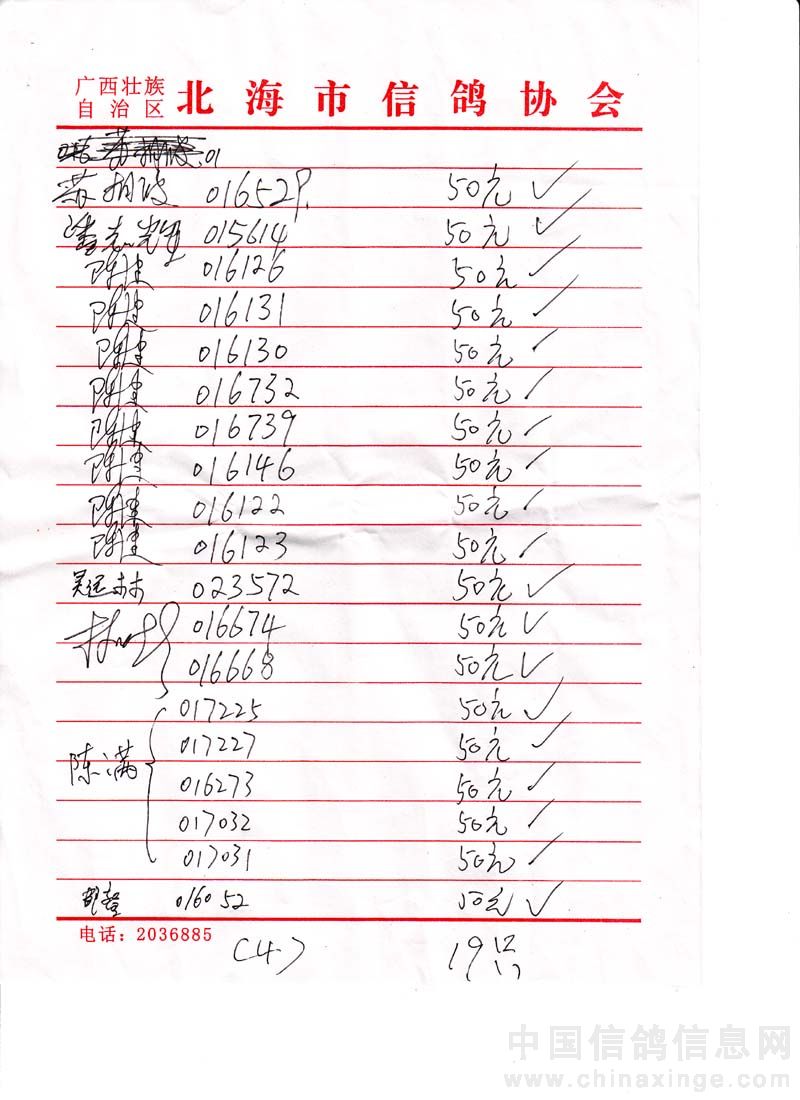 广西壮族
自治区 北海市信鸽协会
苏 01
016529 50元 ✓
015614 50元 ✓
陈建 016126 50元 ✓
陈建 016131 50元 ✓
陈建 016130 50元 ✓
陈建 016732 50元 ✓
陈建 016739 50元 ✓
陈建 016146 50元 ✓
陈建 016122 50元 ✓
陈建 016123 50元 ✓
吴远林 023572 50元 ✓
林 016674 50元 ✓
016668 50元 ✓
017225 50元 ✓
017227 50元 ✓
陈满 016273 50元 ✓
017032 50元 ✓
017031 50元 ✓
016052 50元 ✓
电话：2036885
(4) 19只
中国信鸽信息网
www.chinaxinge.com